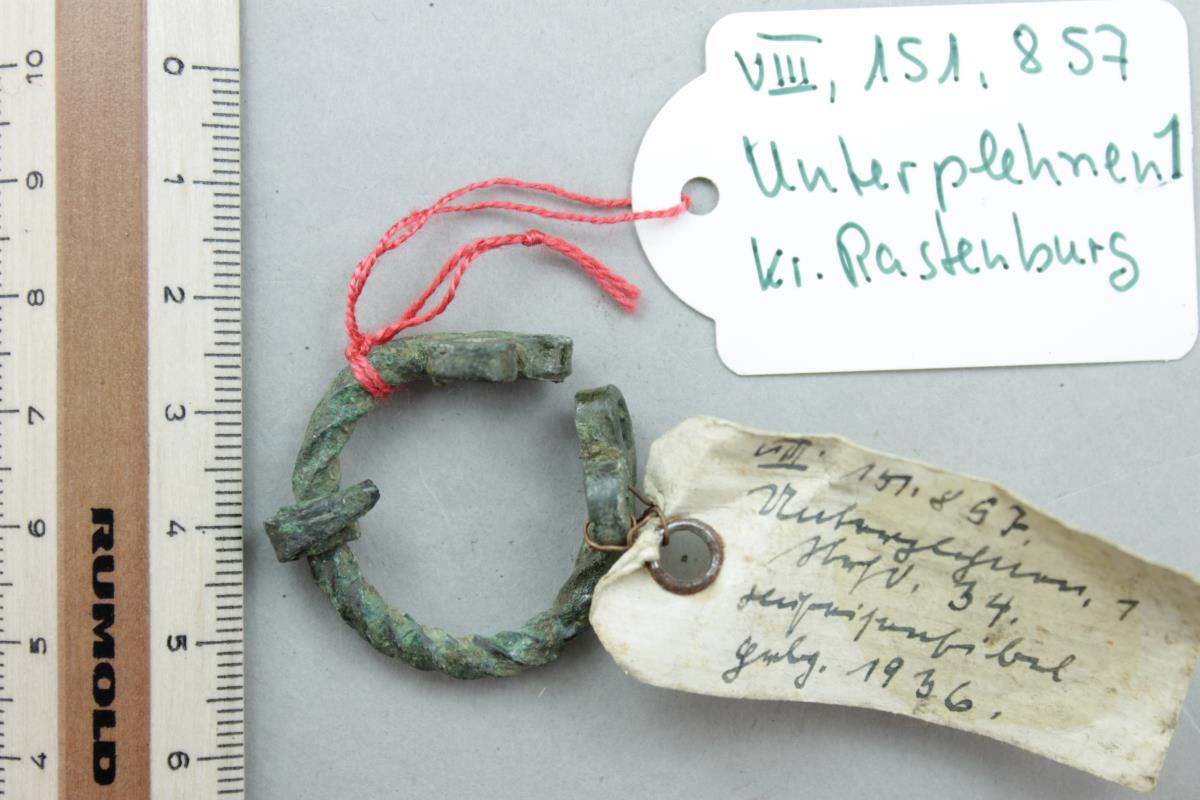 VIII, 151, 857
Unterplehnen 1
Kr. Rastenburg
VIII. 151. 857.
Unterplehnen, 1
34.
Hufeisenfibel
gebg. 1936.
10 9 8 7 6 5 4
RUMOLD
0 1 2 3 4 5 6